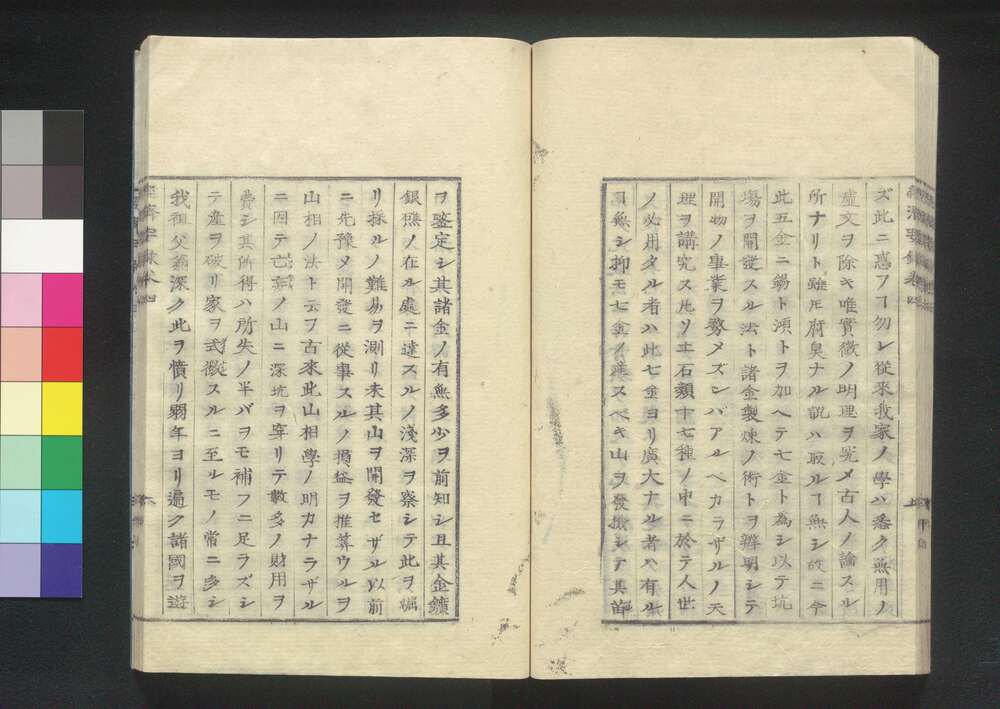 ズ此ニ惑フヿ勿レ從來我家ノ學ハ悉ク無用ノ
虚文ヲ除キ唯實徴ノ明理ヲ究メ古人ノ論スル
所ナリト雖𪜈腐臭ナル説ハ取ルヿ無シ故ニ今
此五金ニ錫ト澒トヲ加ヘテ七金ト為シ以テ坑
塲ヲ開發スル法ト諸金製煉ノ術トヲ辨明シテ
開物ノ事業ヲ務メズンバアルベカラザルノ天
理ヲ講究ス凡ソ土石類十七種ノ中ニ於テ人世
ノ必用タル者ハ此七金ヨリ廣大ナル者ハ有ル
無シ抑モ七金ノ蘊スベキ山ヲ發撿シテ其苗
ヲ鑒定シ其諸金ノ有無多少ヲ前知シ且其金鑛
銀𨫝ノ在ル處ニ達スルノ淺深ヲ察シテ此ヲ堀
リ採ルノ難易ヲ測リ未其山ヲ開發セザル以前
ニ先豫メ開發ニ從事スルノ損益ヲ推算ウルヲ
山相ノ法ト云フ古來此山相學ノ明カナラザル
ニ因テ亡ノ山ニ深坑ヲ穿リテ數多ノ財用ヲ
費シ其所得ハ所失ノ半バヲモ補フニ足ラズシ
テ産ヲ破リ家ヲ式微スルニ至ルモノ常ニ多シ
我祖父翁深ク此ヲ憤リ弱年ヨリ遍ク諸國ヲ遊